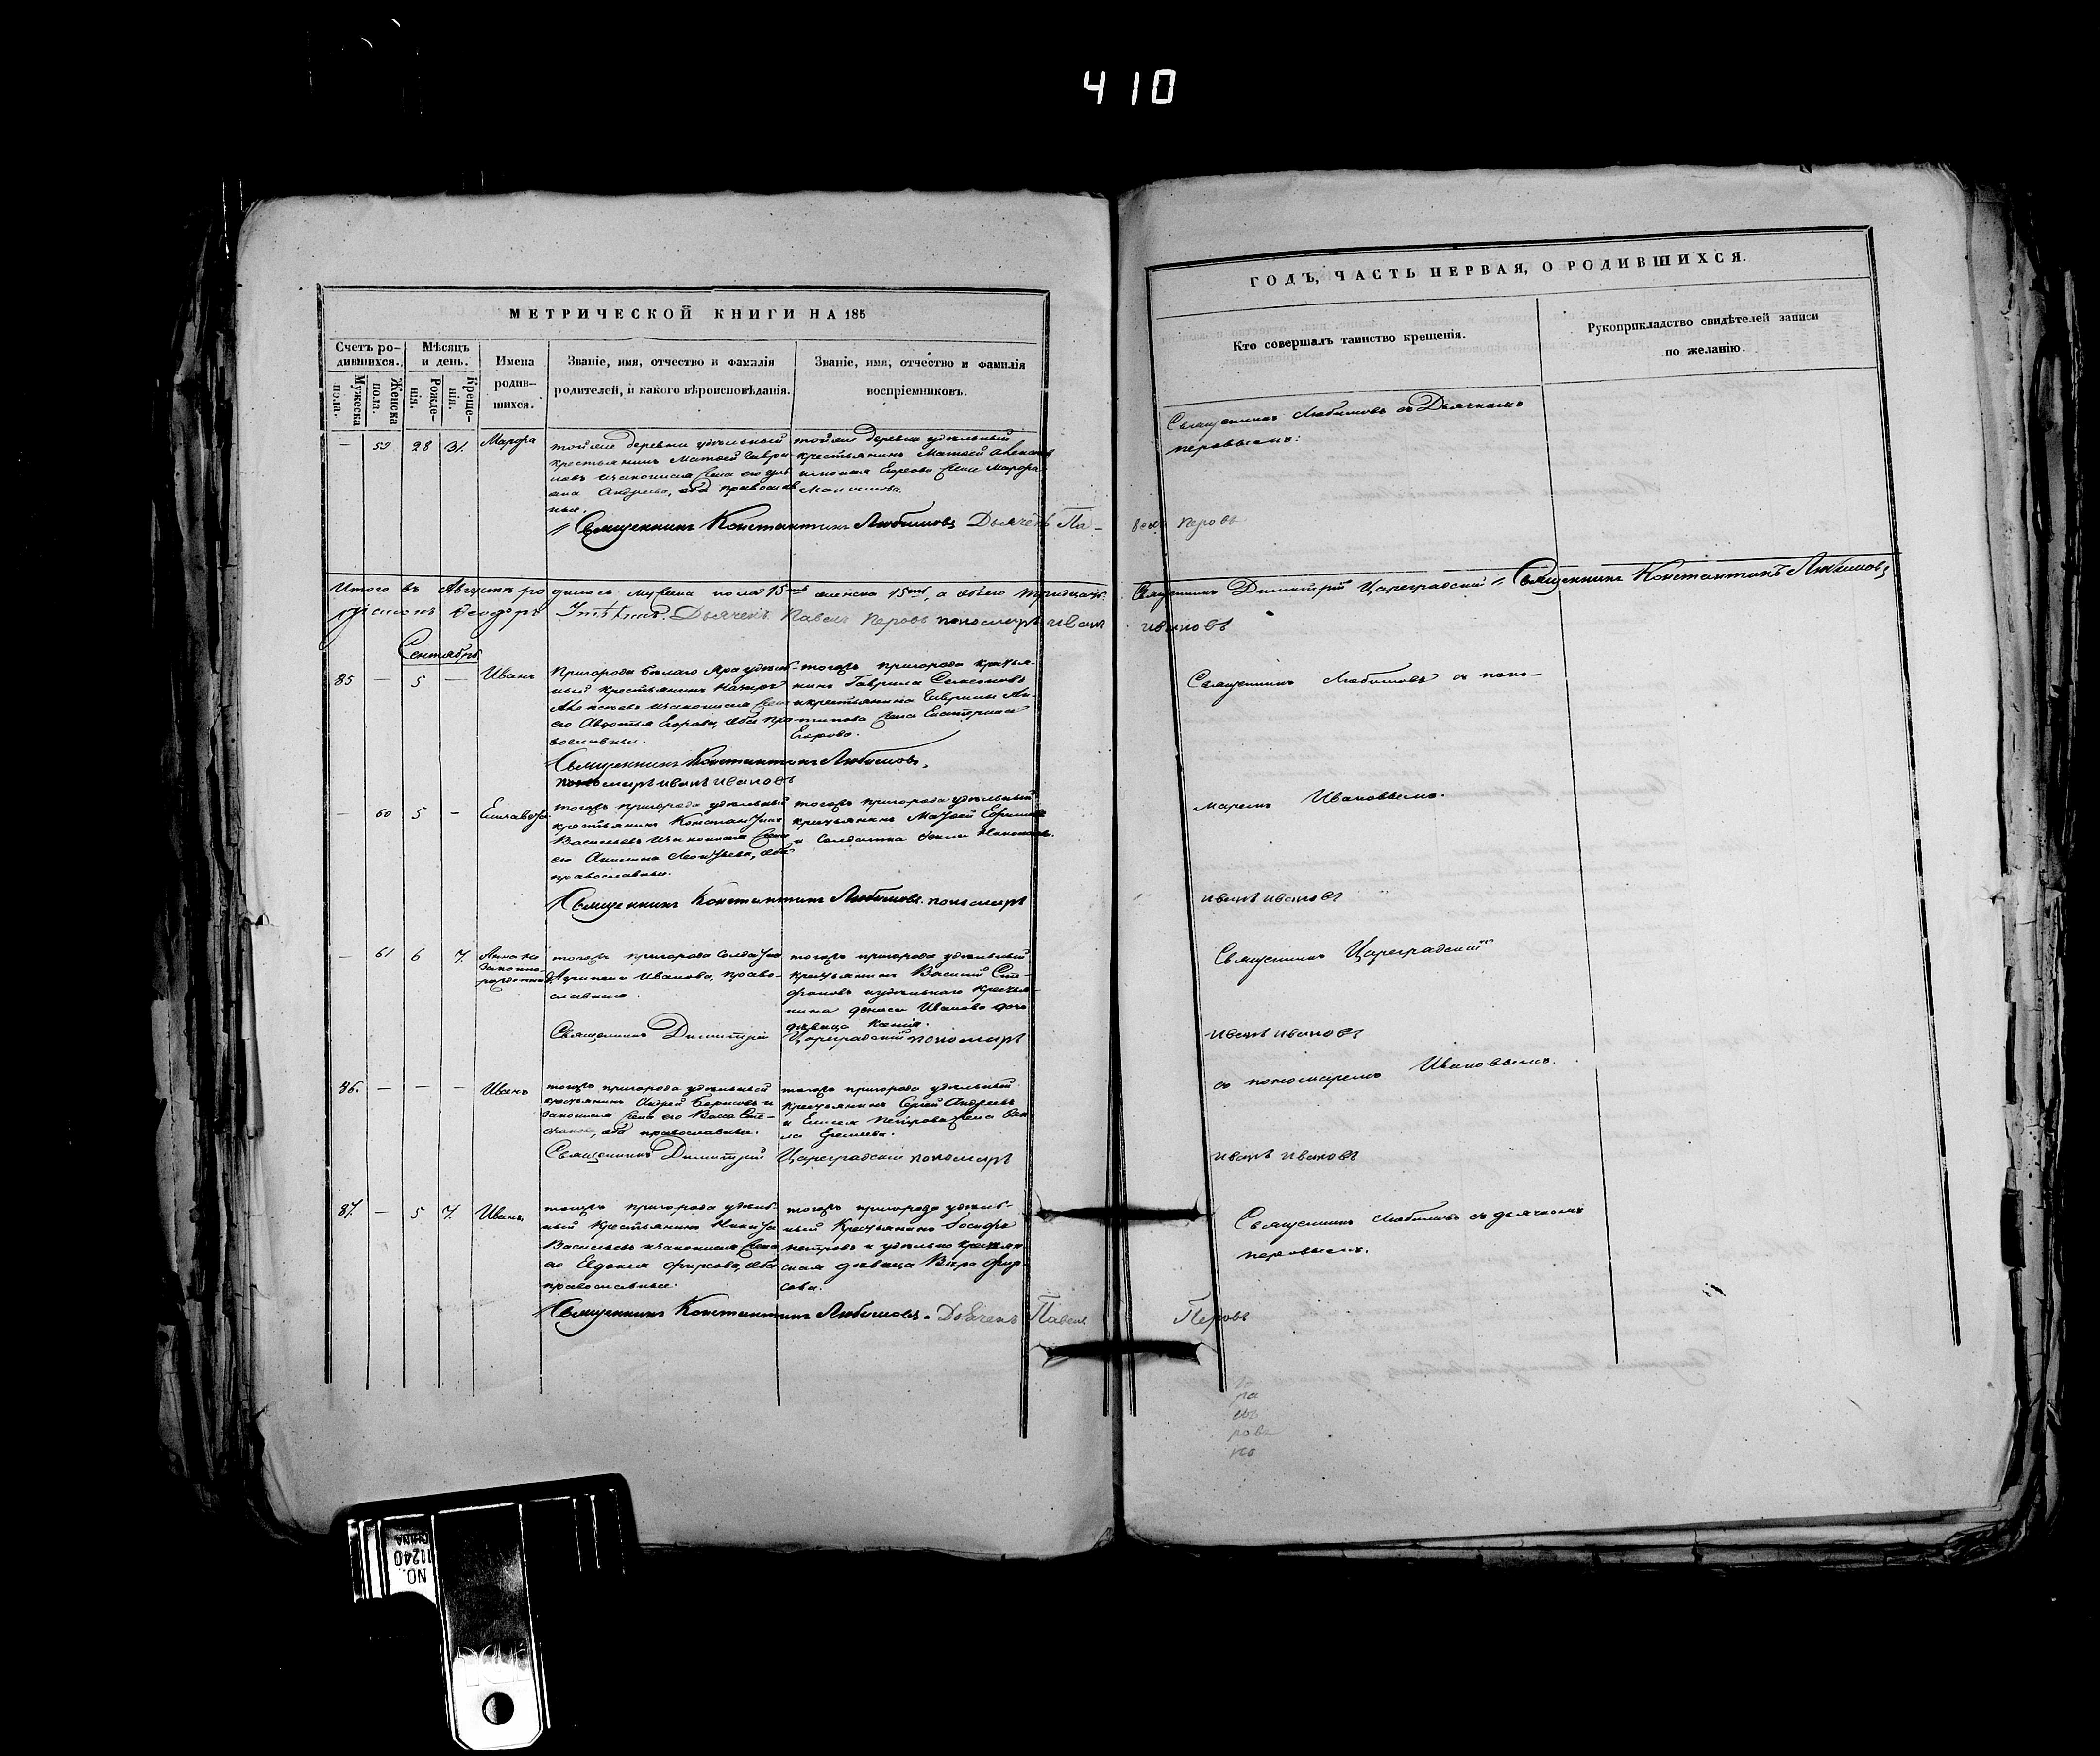 410
МЕТРИЧЕСКОЙ КНИГИ НА 185
Счетъ ро-
дившихся.
Мѣсяцъ
и день.
Мужеска
пола.
Женска
пола.
Рожде-
нія.
Креще-
нія.
Имена
родив-
шихся.
Званіе, имя, отчество и фамилія
родителей, и какого вѣроисповѣданія.
Званіе, имя, отчество и фамилія
воспріемниковъ.
— 59 28 31. Марфа
тойже деревни удѣльный
крестьянинъ Матвей Гаври-
ловъ изаконная жена его
Андреева, оба православ
ные.
тойже деревни удѣльный
крестьянинъ Матвей
Егорова жена Марфа
Священникъ Константинъ Любимовъ Дьячекъ Па-
Итого въ Августѣ родилось мужеска пола 15ть женска 15ть, а обоего тридцать.
Дьячекъ Павелъ Перовъ пономарь иванъ
Сентябрь
85 — 5 — Иванъ
Пригорода Бѣлаго Яра удѣль-
ный крестьянинъ
Алексѣевъ изаконная жена
его Авдотья Егорова, оба пра-
вославные.
тогожъ пригорода крестья-
нинъ Гаврила Семеновъ
икрестьянина Гаврилы Ан-
типова жена Екатерина
Егорова.
Священникъ Константинъ Любимовъ,
пономарь иванъ ивановъ
— 60 5 — Елизавета
тогожъ пригорода удѣльный
крестьянинъ Константинъ
Васильевъ изаконная жена
его Акилина Леонтьева, оба
православные.
тогожъ пригорода удѣльный
крестьянинъ Матвей
и солдатка
Священникъ Константинъ Любимовъ. пономарь
— 61 6 7. Анна не
законно-
рожденная
тогожъ пригорода солдатка
Агрипена Иванова, право-
славная.
тогожъ пригорода удѣльный
крестьянинъ Василий Сте-
фановъ иудѣльнаго крестья-
нина дениса Иванова дочь
дѣвица Ксенія.
Священникъ Димитрій Цареградскій пономарь
86. — — — Иванъ
тогожъ пригорода удѣльный
крестьянинъ Андрей Борисовъ и
законная жена его Васса Сте-
фанова, оба православные.
тогожъ пригорода удѣльный
крестьянинъ Сергей Андреевъ
и Елисея Петрова жена
Еремеева.
Священникъ Димитрій Цареградскій пономарь
87. — 5 7. Иванъ,
тогожъ пригорода удѣль-
ный крестьянинъ Никита
Васильевъ изаконная жена
его Евдокия Фирсова, оба
православные.
тогожъ пригорода удѣль-
ный Крестьянинъ Іосифъ
петровъ и удѣльная крестьян-
ская дѣвица Вѣра Фир-
сова.
Священникъ Константинъ Любимовъ. Дьячекъ Павелъ
ГОДЪ, ЧАСТЬ ПЕРВАЯ, О РОДИВШИХСЯ.
Кто совершалъ таинство крещенія.
Рукоприкладство свидѣтелей записи
по желанію.
Священникъ Любимовъ съ Дьячкомъ
перовымъ.
велъ Перовъ
Священникъ Димитрій Цареградскій Священникъ Константинъ Любимовъ
ивановъ
Священникъ Любимовъ съ поно-
маремъ Ивановымъ.
иванъ ивановъ
Священникъ Цареградскій
иванъ ивановъ
со пономаремъ Ивановымъ.
иванъ ивановъ
Священникъ Любимовъ съ дьячкомъ
перовымъ.
Перовъ
NO.
11240